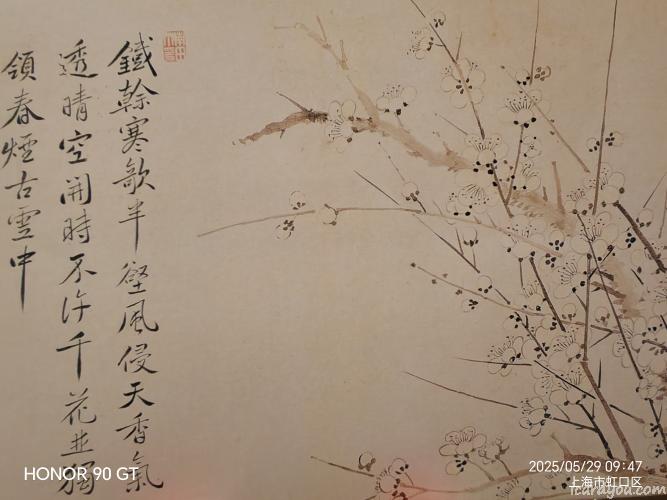 鐵榦寒欹半壑風侵天香氣
透晴空開時不許千花並獨
領春煙古雪中
HONOR 90 GT
2025/05/29 09:47
上海市虹口区
icarayou.com